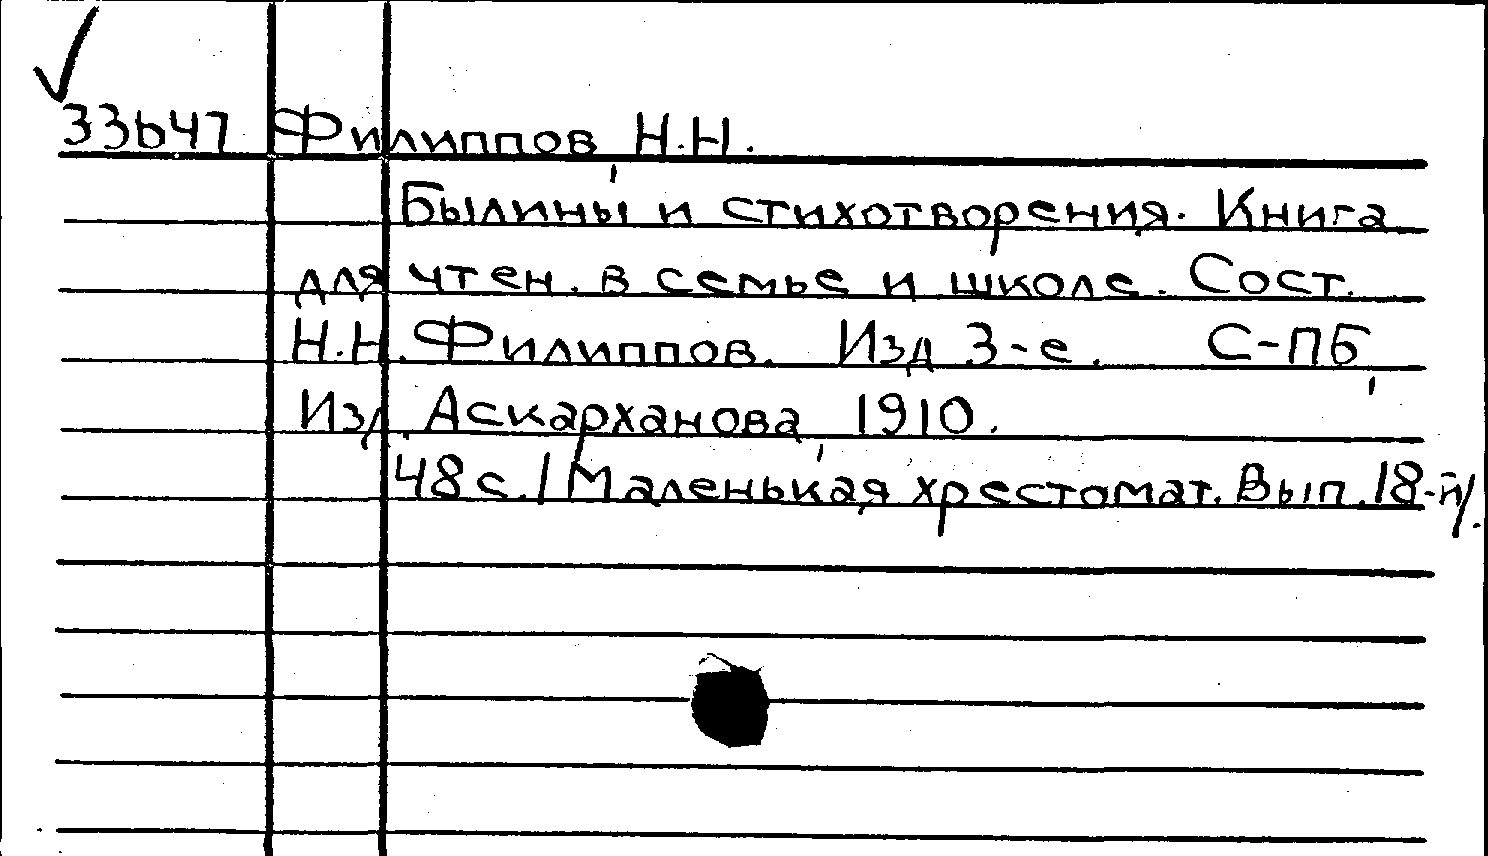 33647 Филиппов, Н.Н.
Былины и стихотворения. Книга
для чтен. в семье и школе. Сост.
Н.Н. Филиппов. Изд 3-е. С-ПБ,
Изд. Аскарханова, 1910.
48 с. / Маленькая хрестомат. Вып. 18-й/.